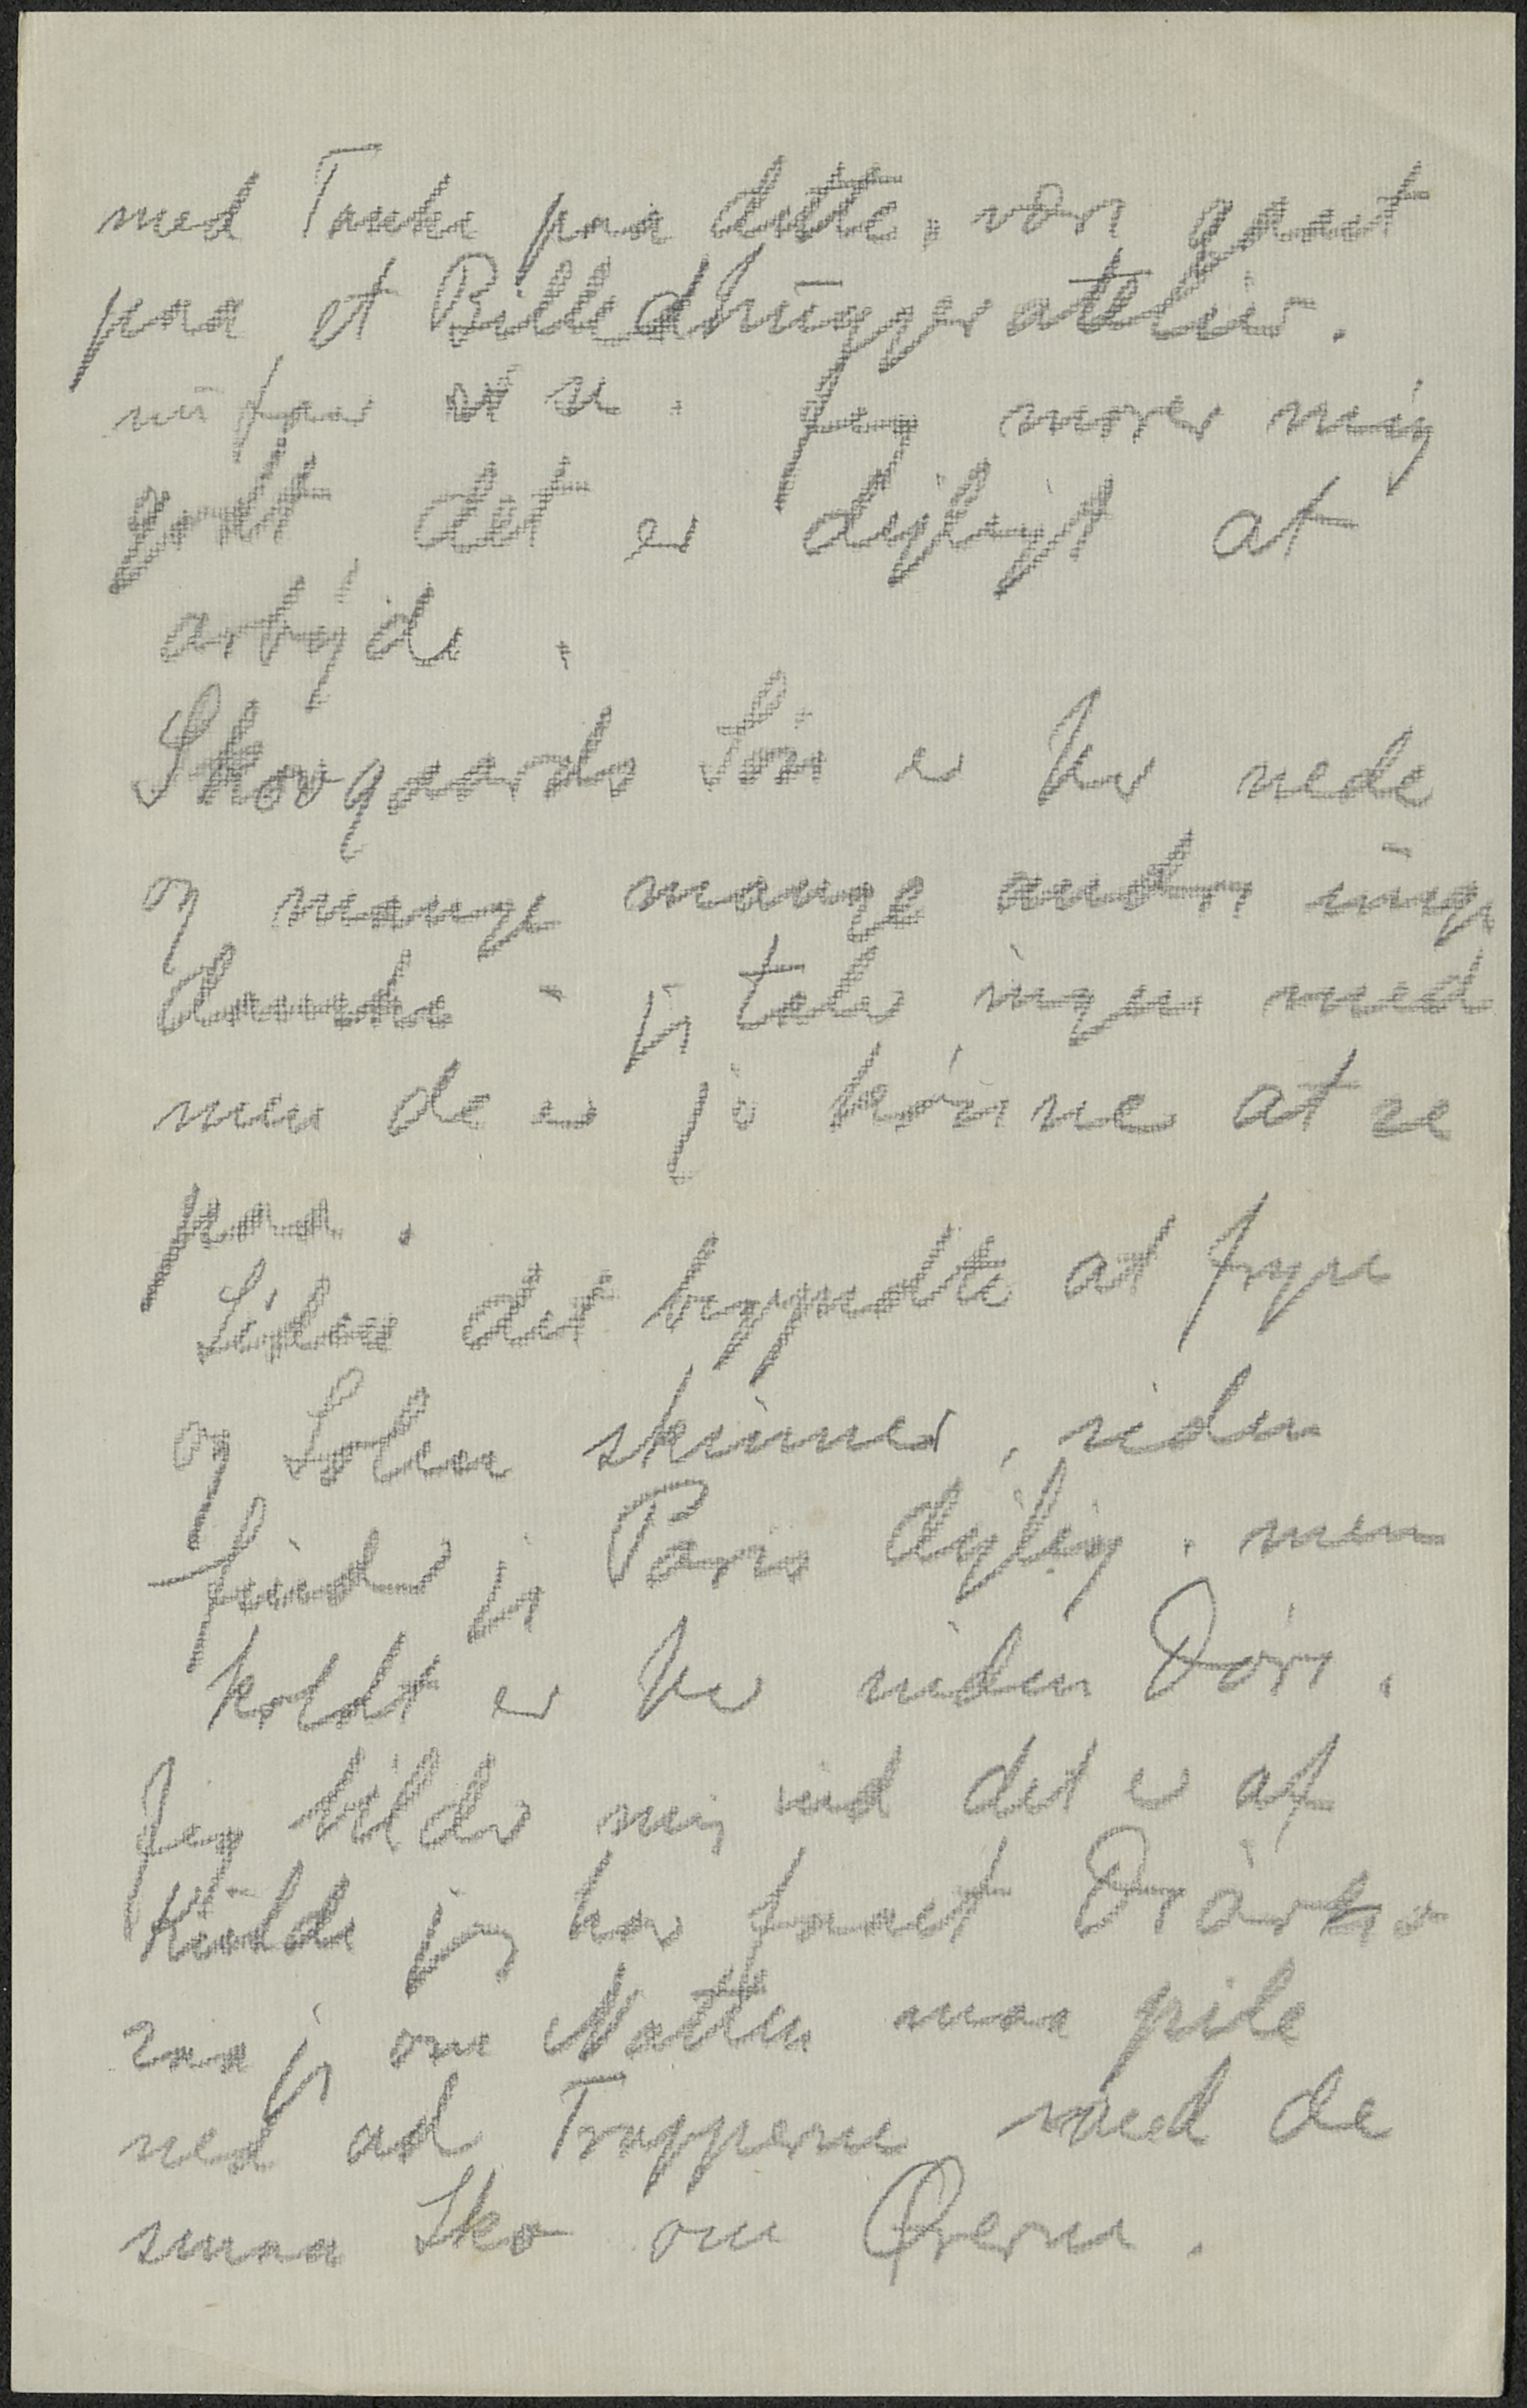 med Tanke paa dette, være gaaet
paa et Billedhuggeratelier.
nu faar vi se. Jeg morer mig
godt, det er dejligt at
arbejde.
Skovgaards Søn er her nede
og mange mange andre unge
danske - jeg taler ingen med
men de er jo kønne at se
paa.
Siden det begyndte at fryse
og Solen skinner, siden
finder jeg Paris dejlig. men
koldt er her inden Døre.
Jeg bilder mig ind det er af
Kulde jeg har faaet
saa jeg om Natten maa pile
ned ad Trapperne med de
smaa Sko om Ørerne.